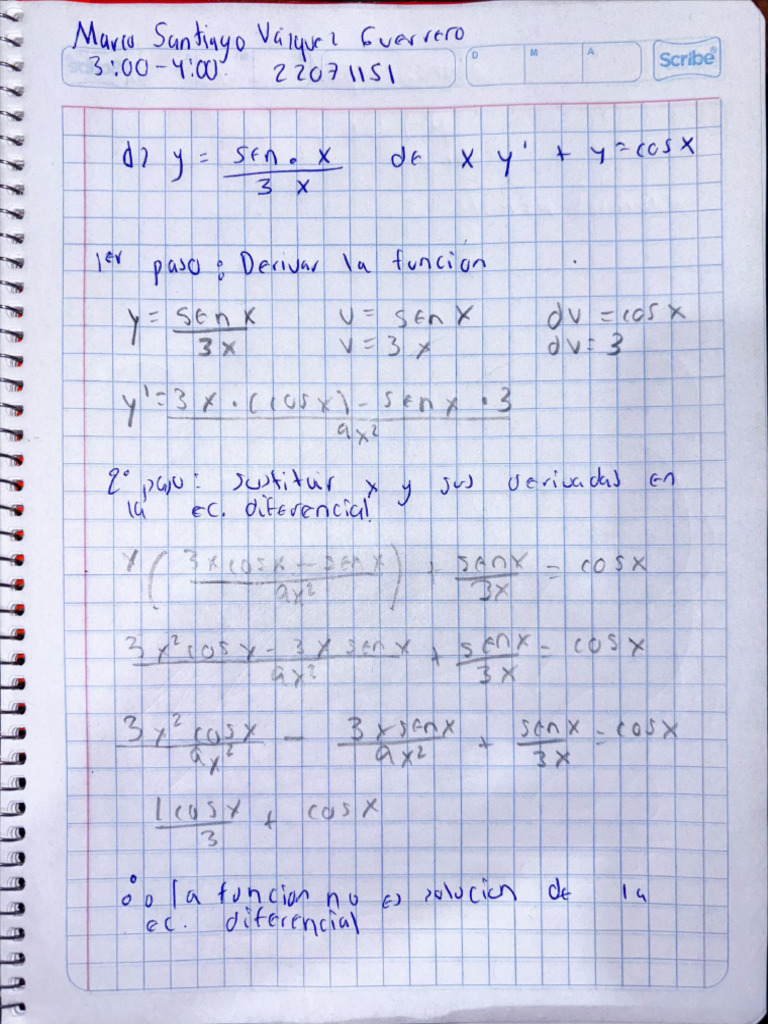 Marco Santiago Vázquez Guerrero
3:00-4:00 22071151
D M A
Scribe®
d) y = sen. x / 3 x de x y' + y = cos x
1er paso: Derivar la función
y = sen x / 3x u = sen x dv = cos x
v = 3 x dv = 3
y' = 3 x · (cos x) - sen x · 3 / 9x²
2° paso: sustituir x y sus derivadas en
la ec. diferencial
x ( 3x cos x - sen x / 9x² ) + sen x / 3x = cos x
3x² cos x - 3x sen x / 9x² + sen x / 3x = cos x
3x² cos x / 9x² - 3x sen x / 9x² + sen x / 3x = cos x
1 cos x / 3 + cos x
∴ la funcion no es solucion de la
ec. diferencial